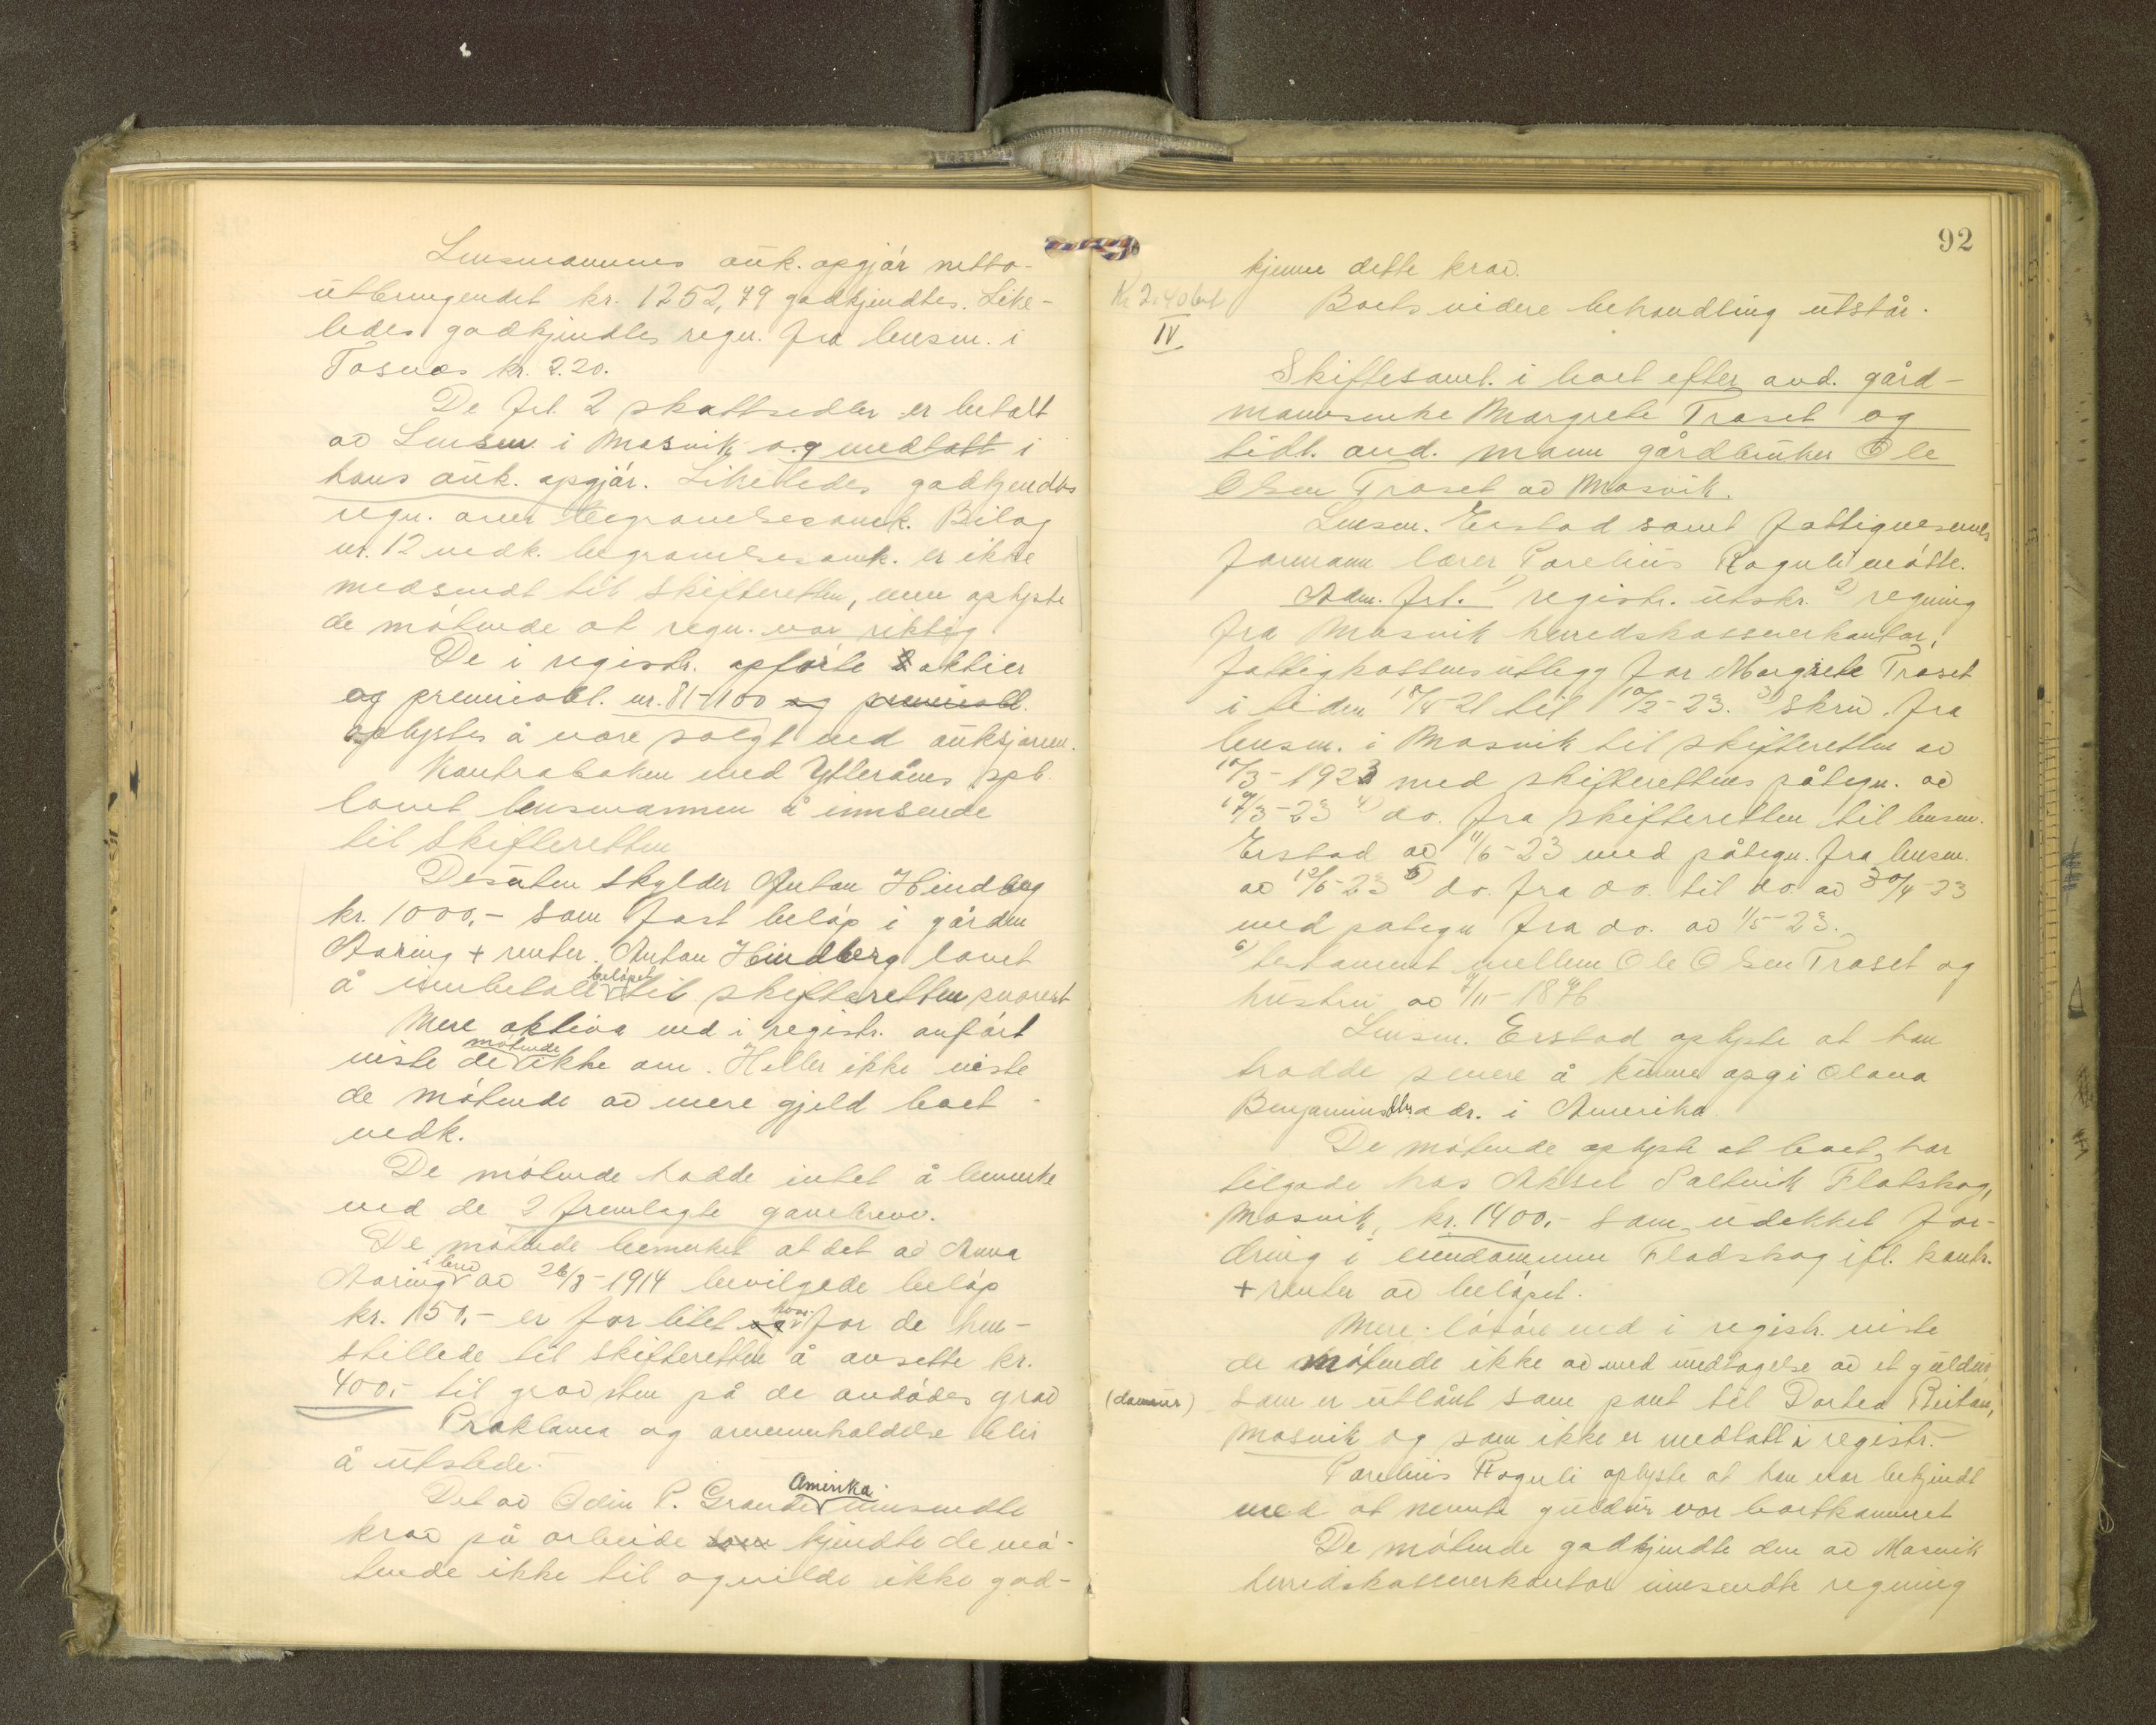 Lensmannens auk. opgjør netto-
utbringendet kr. 1252,79 godkjendtes. Like-
ledes godkjendtes regn. fra lensm. i
Fosnes kr. 2.20.
De frl. 2 skattsedler er betalt
av Lensm. i Mosvik og medtatt i
hans auk. opgjør. Likeledes godkjendtes
regn. over begravelsesomk. Bilag
nr. 12 vedk. begravelsesomk. er ikke
medsendt til skifteretten, men oplyste
de møtende at regn. var riktig.
De i registr. opførte aktier
og premieobl. nr. 81-100 og premieobl.
oplystes å være solgt ved auksjonen.
Kontraboken med Ytterøens spb.
lovet lensmannen å innsende
til skifteretten
Desuten skylder Anton Hindberg
kr. 1000,- som fast beløp i gården
Aaring + renter. Anton Hindberg lovet
å innbetale beløpet til skifteretten snarest
Mere aktiva end i registr. anført
viste de møtende ikke om. Heller ikke viste
de møtende av mere gjeld boet
vedk.
De møtende hadde intet å bemerke
ved de 2 fremlagte gavebrev.
De møtende bemerket at det av Anna
Aaring i brev av 26/8-1914 bevilgede beløp
kr. 150,- er for litet hvorfor de hen-
stillede til skifteretten å avsette kr.
400,- til gravsten på de avdødes grav
Proklama og arvemnholdelse blir
å utstede.
Det av Odin P. Grande Amerika innsendte
krav på arbeide som kjendte de mø-
tende ikke til og vilde ikke god-
92
kjenne dette krav.
Kr 2.40 bet
Boets videre behandling utstår.
IV
Skiftesaml. i boet efter avd. gård-
mannsenke Margrete Traset og
tidl. avd. mann gårdbruker Ole
Olsen Traset av Mosvik.
Lensm. Erstad samt fattigvesenets
formann lærer Parelius Roguli møtte.
Adm. frl. 1) registr. utskr. 2) regning
fra Mosvik herredskassererkontor,
fattigkassens utlegg for Margrete Traset
i tiden 18/4-21 til 10/2-23. 3) Skriv. fra
lensm. i Mosvik til skifteretten av
10/3-1923 med skifterettens påtegn. av
17/3-23 4) do. fra skifteretten til lensm.
Erstad av 11/6-23 med påtegn. fra lensm.
av 12/6-23 5) do. fra do. til do av 30/4-23
med påtegn fra do. av 1/5-23.
6) testament mellem Ole Olsen Traset og
hustru av 7/11-1876
Lensm. Erstad oplyste at han
trodde senere å kunne opgi Olava
Benjaminsdtrs adr. i Amerika.
De møtende oplyste at boet har
tilgode hos Aksel Saltvik Flatskog,
Mosvik, kr. 1400,- som udekket for-
dring i eiendommen Fladskog ifl. kontr.
+ renter av beløpet.
Mere løsøre end i registr. viste
de møtende ikke av med undtagelse av et guldur
(dameur)
som er utlånt som pant til Dortea Reitan,
Mosvik og som ikke er medtatt i registr.
Parelius Roguli oplyste at han var bekjendt
med at nevnte guldur var bortkommet
De møtende godkjendte den av Mosvik
herredskassererkontor innsendte regning